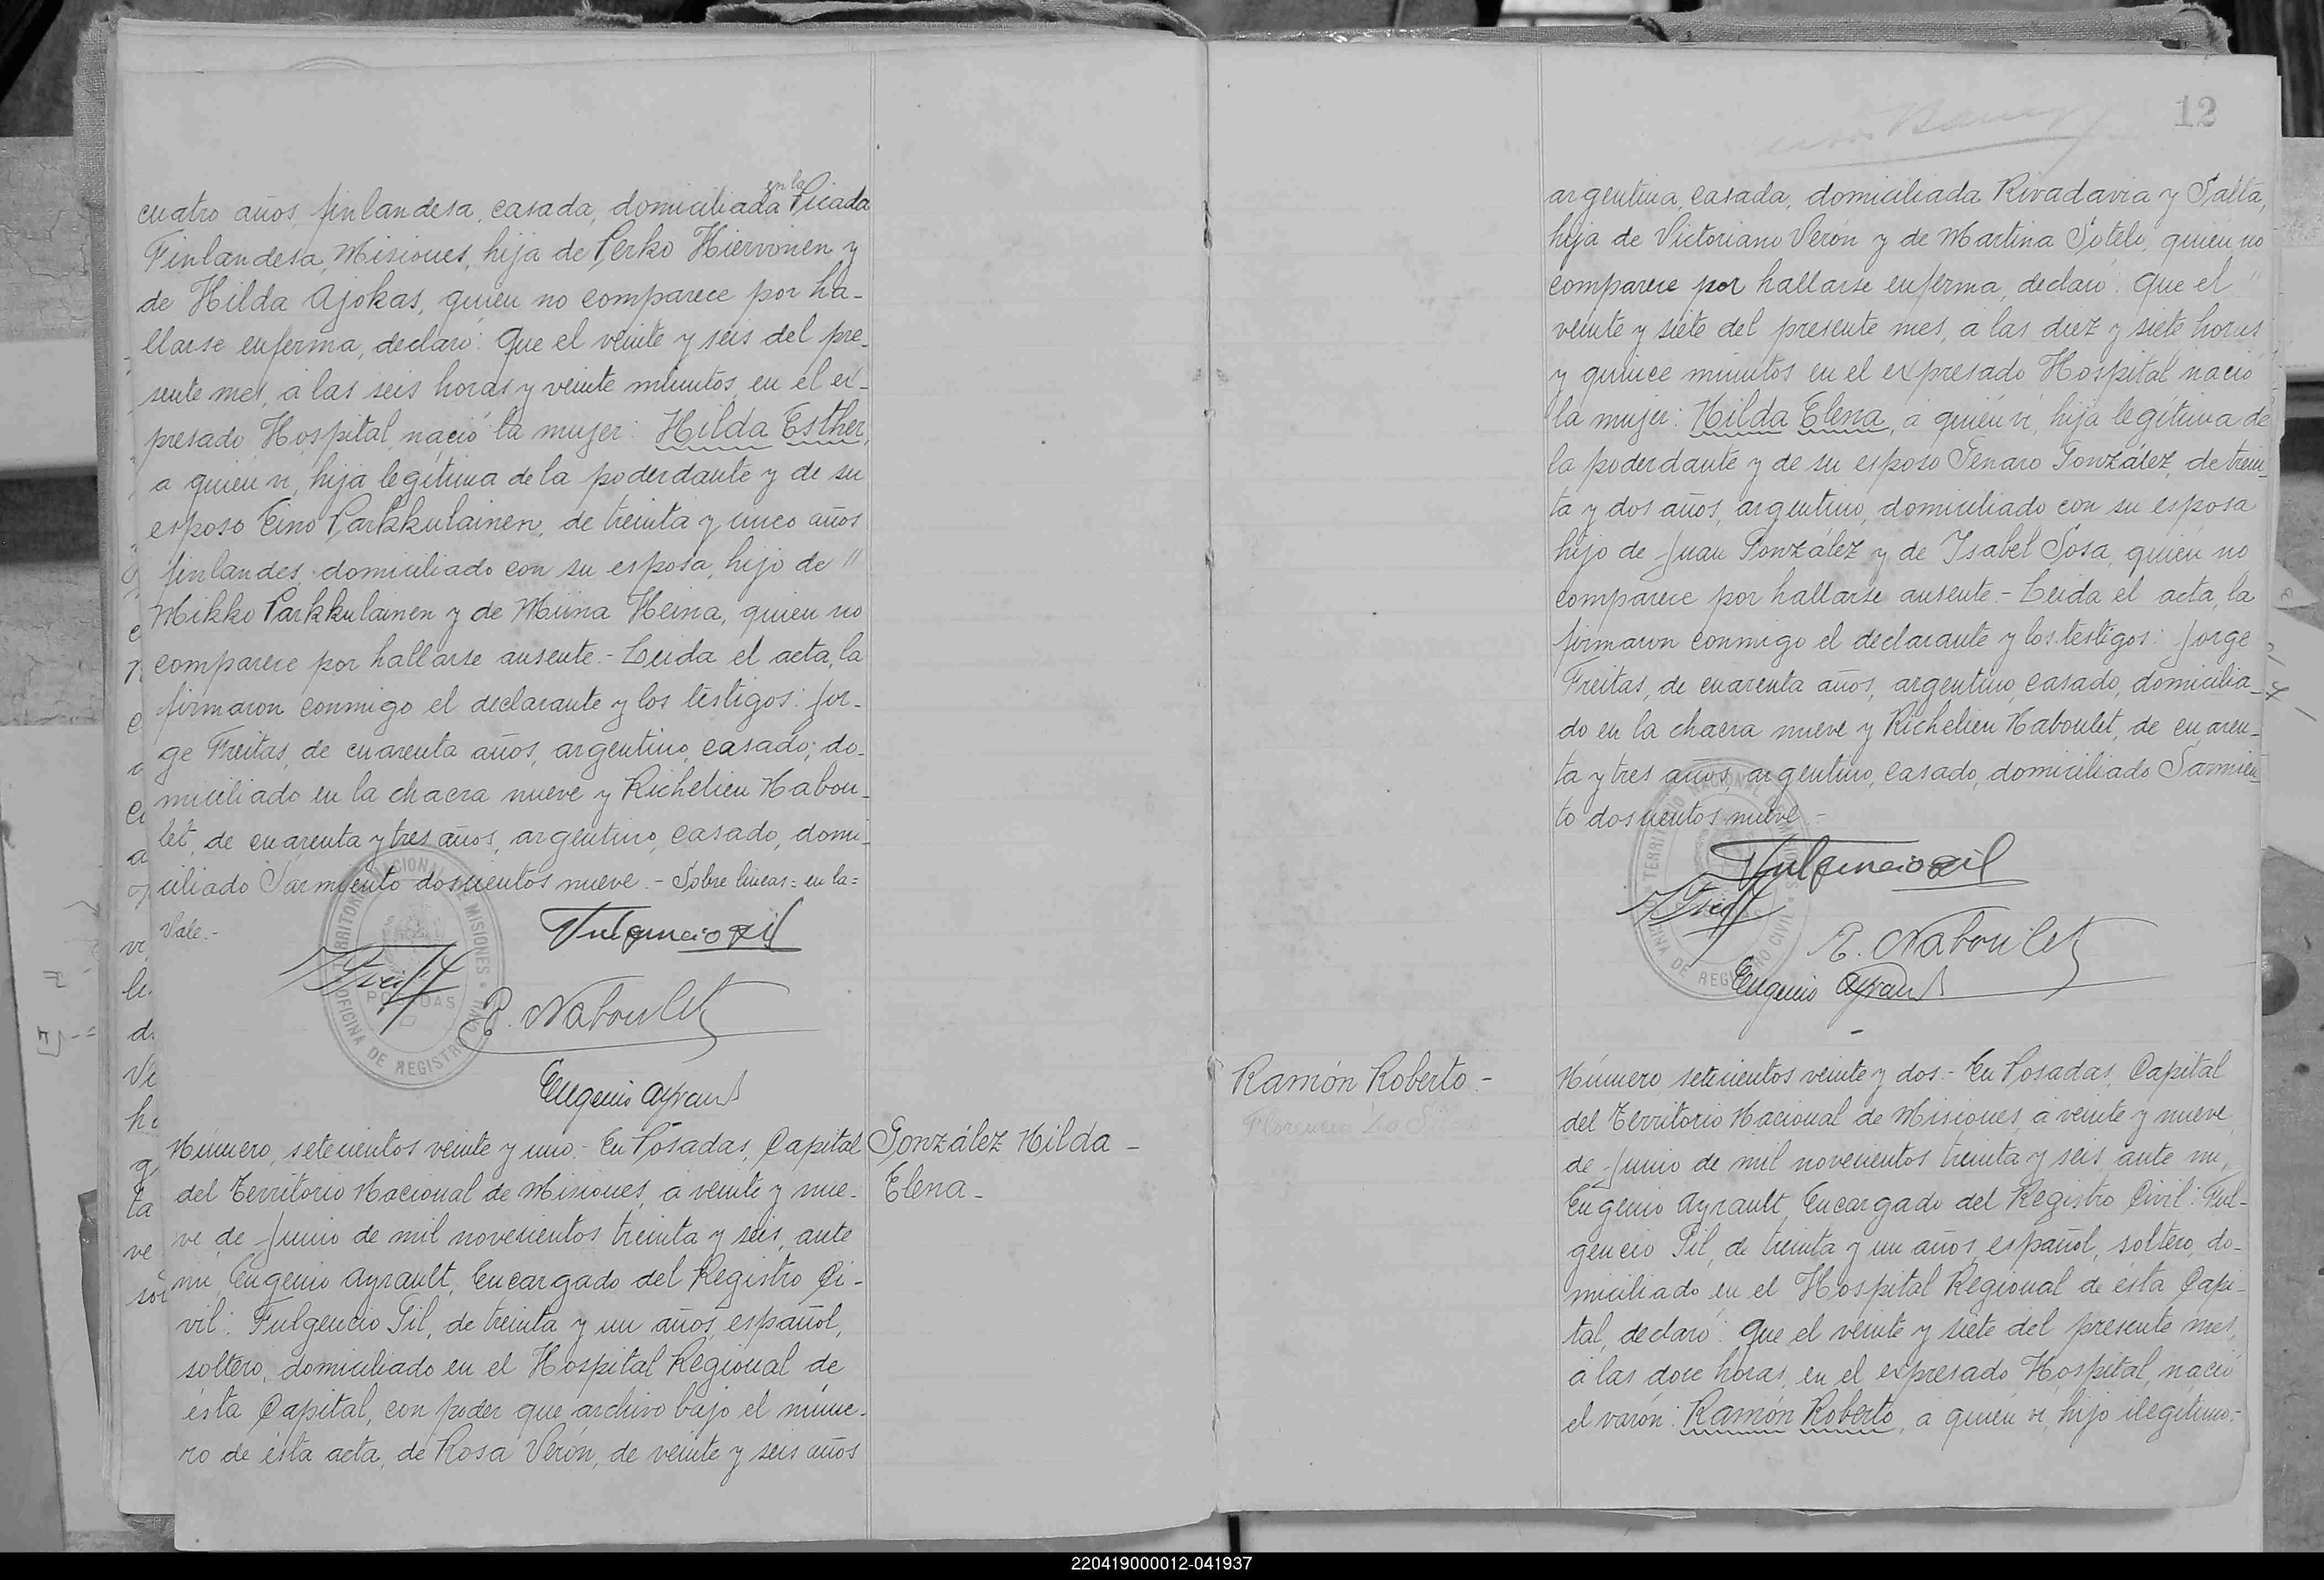 cuatro años, finlandesa, casada, domiciliada en la Picada
Finlandesa, Misiones, hija de Perko Hiervonen y
de Hilda Ajokas, quien no comparece por ha-
llarse enferma, declaró: Que el veinte y seis del pre-
sente mes, á las seis horas y veinte minutos, en el ex-
presado Hospital, nació la mujer: Hilda Esther,
a quien ví, hija legítima de la poderdante y de su
esposo Eino Parkkulainen, de treinta y cinco años
finlandes, domiciliado con su esposa, hijo de "
Mikko Parkkulainen y de Miina Heina, quien no
comparece por hallarse ausente.- Leida el acta, la
firmaron conmigo el declarante y los testigos: Jor-
ge Freitas, de cuarenta años, argentino, casado, do-
miciliado en la chacra nueve y Richelieu Nabou-
let, de cuarenta y tres años, argentino, casado, domi-
ciliado Sarmiento doscientos nueve.- Sobre lineas= en la=
Vale.-
Fulgencio Gil
R. Naboulet
Eugenio Ayrault
TERRITORIO NACIONAL DE MISIONES
POSADAS
OFICINA DE REGISTRO CIVIL
Número setecientos veinte y uno.- En Posadas, Capital
del Territorio Nacional de Misiones, a veinte y nue-
ve de Junio de mil novecientos treinta y seis, ante
mí, Eugenio Ayrault, Encargado del Registro Ci-
vil: Fulgencio Gil, de treinta y un años, español,
soltero, domiciliado en el Hospital Regional de
ésta Capital, con poder que archivo bajo el núme-
ro de ésta acta, de Rosa Verón, de veinte y seis años
González Hilda -
Elena -
12
argentina, casada, domiciliada Rivadavia y Salta,
hija de Victoriano Verón y de Martina Sotelo, quien no
comparece por hallarse enferma, declaró: Que el "
veinte y siete del presente mes, á las diez y siete horas
y quince minutos en el expresado Hospital nació
la mujer: Hilda Elena, á quien ví, hija legítima de
la poderdante y de su esposo Genaro González, de trein-
ta y dos años, argentino, domiciliado con su esposa
hijo de Juan González y de Isabel Sosa, quien no
comparece por hallarse ausente.- Leida el acta, la
firmaron conmigo el declarante y los testigos: Jorge
Freitas, de cuarenta años, argentino, casado, domicilia-
do en la chacra nueve y Richelieu Naboulet, de cuaren-
ta y tres años, argentino, casado, domiciliado Sarmien-
to doscientos nueve.-
Fulgencio Gil
R. Naboulet
Eugenio Ayrault
Ramón Roberto.-
Número setecientos veinte y dos.- En Posadas, Capital
del Territorio Nacional de Misiones, á veinte y nueve
de Junio de mil novecientos treinta y seis, ante mí,
Eugenio Ayrault, Encargado del Registro Civil: Ful-
gencio Gil, de treinta y un años, español, soltero, do-
miciliado en el Hospital Regional de ésta Capi-
tal, declaró: Que el veinte y siete del presente mes,
á las doce horas, en el expresado Hospital, nació
el varón: Ramón Roberto, á quien ví, hijo ilegítimo.-
220419000012-041937